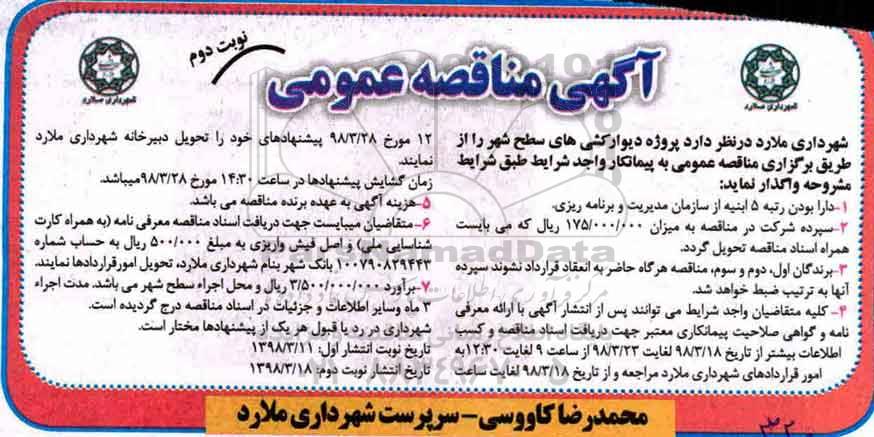 نوبت دوم
آگهی مناقصه عمومی
شهرداری ملارد
شهرداری ملارد
شهرداری ملارد درنظر دارد پروژه دیوارکشی های سطح شهر را از
طریق برگزاری مناقصه عمومی به پیمانکار واجد شرایط طبق شرایط
مشروحه واگذار نماید:
۱-دارا بودن رتبه ۵ ابنیه از سازمان مدیریت و برنامه ریزی.
۲-سپرده شرکت در مناقصه به میزان ۱۷۵/۰۰۰/۰۰۰ ریال که می بایست
همراه اسناد مناقصه تحویل گردد.
۳-برندگان اول، دوم و سوم، مناقصه هرگاه حاضر به انعقاد قرارداد نشوند سپرده
آنها به ترتیب ضبط خواهد شد.
۴- کلیه متقاضیان واجد شرایط می توانند پس از انتشار آگهی با ارائه معرفی
نامه و گواهی صلاحیت پیمانکاری معتبر جهت دریافت اسناد مناقصه و کسب
اطلاعات بیشتر از تاریخ ۹۸/۳/۱۸ لغایت ۹۸/۳/۲۳ از ساعت ۹ لغایت ۱۲:۳۰ به
امور قراردادهای شهرداری ملارد مراجعه و از تاریخ ۹۸/۳/۱۸ لغایت ساعت
۱۲ مورخ ۹۸/۳/۲۸ پیشنهادهای خود را تحویل دبیرخانه شهرداری ملارد
نمایند.
زمان گشایش پیشنهادها در ساعت ۱۴:۳۰ مورخ ۹۸/۳/۲۸میباشد.
۵-هزینه آگهی به عهده برنده مناقصه می باشد.
۶-متقاضیان میبایست جهت دریافت اسناد مناقصه معرفی نامه (به همراه کارت
شناسایی ملی) و اصل فیش واریزی به مبلغ ۵۰۰/۰۰۰ ریال به حساب شماره
۱۰۰۷۹۰۸۲۹۴۴۳ بانک شهر بنام شهرداری ملارد، تحویل امورقراردادها نمایند.
۷-برآورد ۳/۵۰۰/۰۰۰/۰۰۰ ریال و محل اجراء سطح شهر می باشد. مدت اجراء
۳ ماه وسایر اطلاعات و جزئیات در اسناد مناقصه درج گردیده است.
شهرداری در رد یا قبول هر یک از پیشنهادها مختار است.
تاریخ نوبت انتشار اول: ۱۳۹۸/۳/۱۱
تاریخ انتشار نوبت دوم: ۱۳۹۸/۳/۱۸
محمدرضا کاووسی - سرپرست شهرداری ملارد